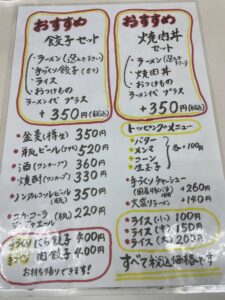 おすすめ
餃子セット
・ラーメン(選んで下さい)
・手づくり餃子(5ケ)
・ライス
・おつけもの
ラーメン代プラス
+350円(税込)
おすすめ
焼肉丼
セット
・ラーメン(選んで下さい)
・焼肉丼
・おつけもの
ラーメン代プラス
+350円(税込)
・金麦(樽生) 350円
・瓶ビール(中) 520円
・酒(ワンカップ) 360円
・焼酎(ワンカップ) 330円
・ノンアルコールビール(瓶) 350円
・コカ・コーラ
ジンジャエール(瓶) 220円
手づくり にら餃子 400円
手づくり 肉餃子 400円
お持ち帰りできます!
トッピングメニュー
・バター
・メンマ
・コーン
・生玉子
各・100円
・手づくりチャーシュー
+260円
・大盛りラーメン +140円
・ライス(小) 100円
・ライス(中) 150円
・ライス(大) 200円
すべて税込価格です